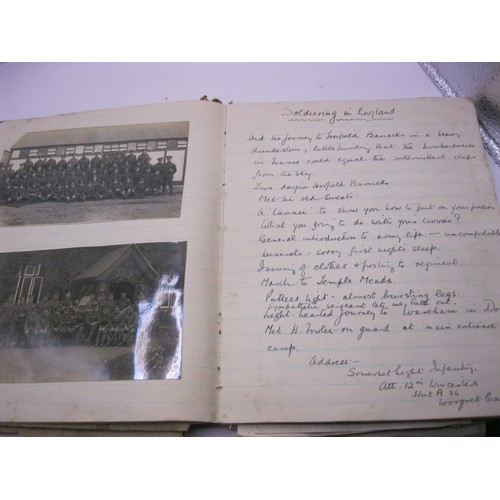 Soldiering in England
Did the journey to Horfield Barracks in a heavy
thunderstorm, little thinking that the bombardments
in France could equal the intermittent claps
from the sky.
Two days in Horfield Barracks
Met the old sweats
A "tanner" to show you how to put on your puttees
What you going to do with your civvies?
General introduction to army life – uncomfortable
biscuits – sorry first night's sleep.
Issuing of clothes & posting to regiment.
March to Temple Meads.
Puttees tight – almost bursting legs
sympathetic sergeant lets me, fall out.
light hearted journey to Wareham in Do
Met H. Fowler on guard at main entrance
camp.
Address:-
Somerset Light Infantry.
Att. 12th Worcesters
Hut A 36
Worgret Ca